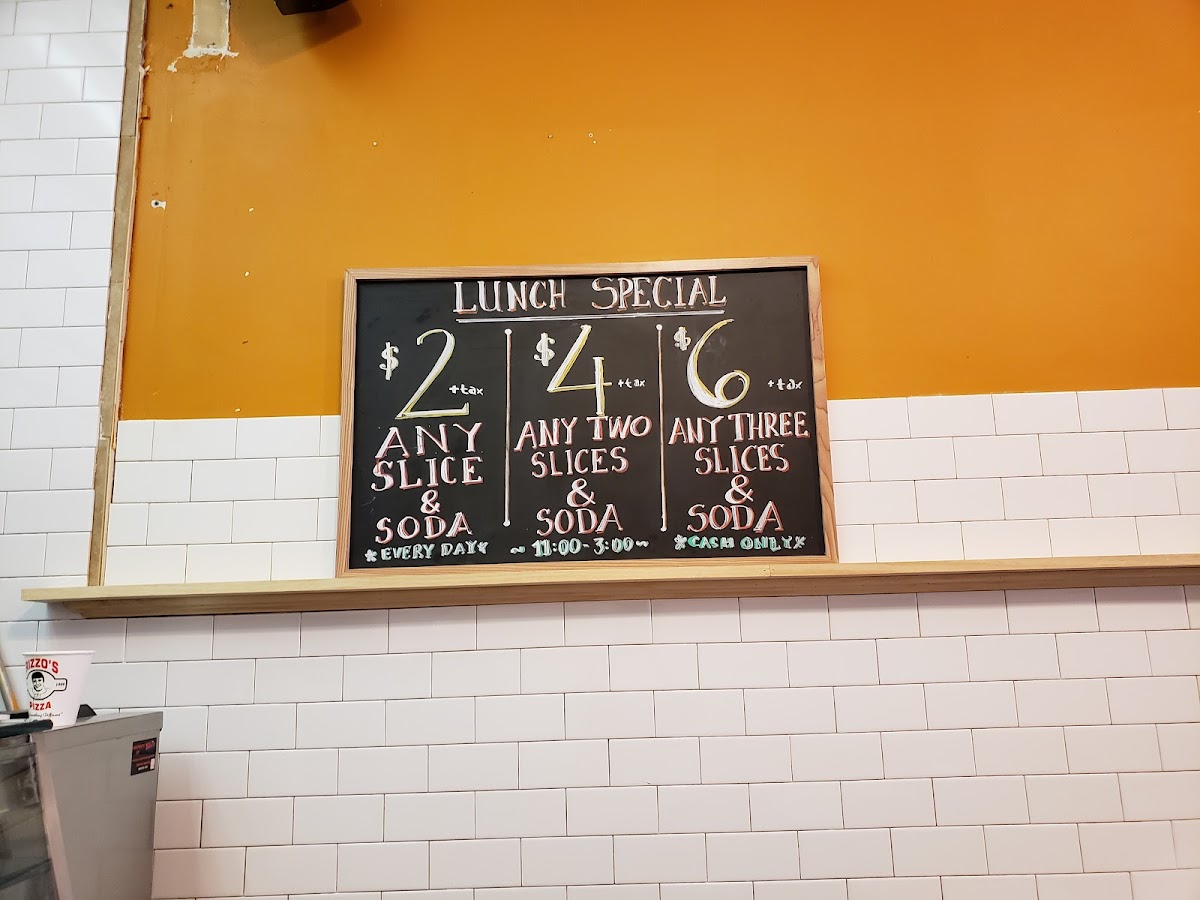 LUNCH SPECIAL
$2 +tax
ANY
SLICE
&
SODA
*EVERY DAY*
$4 +tax
ANY TWO
SLICES
&
SODA
~ 11:00-3:00~
$6 +tax
ANY THREE
SLICES
&
SODA
*CASH ONLY*
IZZO'S
PIZZA